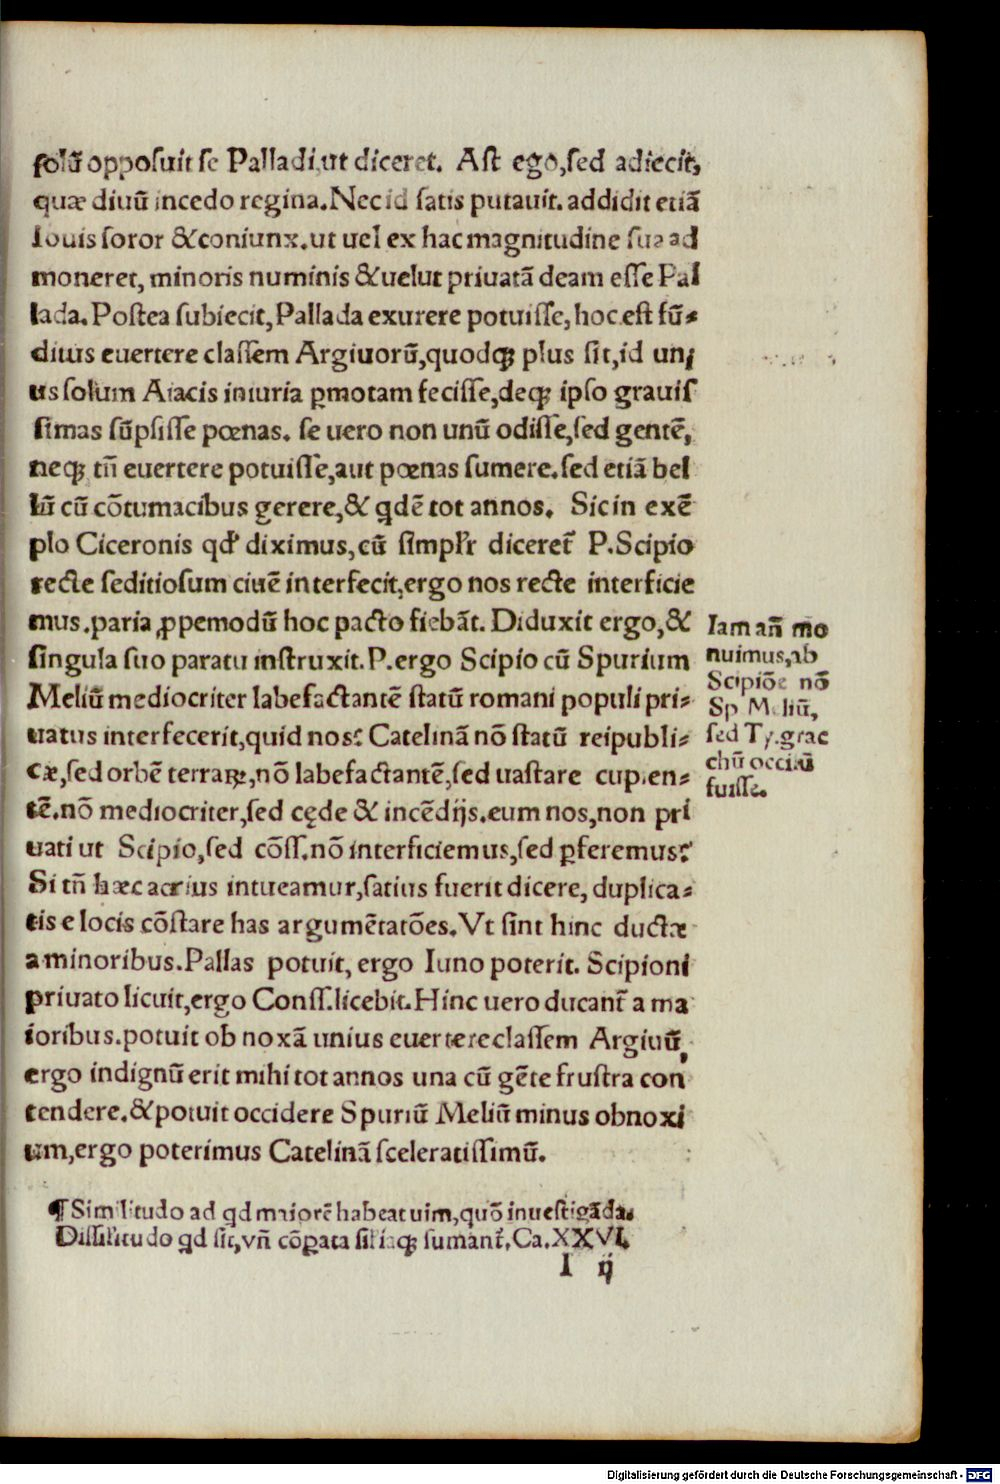 solū opposuit se Palladi, ut diceret. Ast ego, sed adiecit,
quæ diuū incedo regina. Nec id satis putauit. addidit etiā
Iouis soror & coniunx. ut uel ex hac magnitudine sua ad
moneret, minoris numinis & uelut priuatā deam esse Pal
lada. Postea subiecit, Pallada exurere potuisse, hoc est fū-
ditus euertere classem Argiuorū, quodqꝫ plus sit, id uni
us solum Aiacis iniuria ꝑmotam fecisse, deqꝫ ipso grauis
simas sūpsisse pœnas. se uero non unū odisse, sed gentē,
neqꝫ tm̄ euertere potuisse, aut pœnas sumere. sed etiā bel
lū cū cōtumacibus gerere, & qdē tot annos. Sic in exē
plo Ciceronis qd' diximus, cū simpl'r diceret̄ P. Scipio
recte seditiosum ciuē interfecit, ergo nos recte interficie
mus. paria ꝓpemodū hoc pacto fiebāt. Diduxit ergo, &
singula suo paratu instruxit. P. ergo Scipio cū Spurium
Meliū mediocriter labefactantē statū romani populi pri-
uatus interfecerit, quid nos? Catelinā nō statū reipubli-
cæ, sed orbē terraꝝ, nō labefactantē, sed uastare cupien-
tē. nō mediocriter, sed cęde & incēdijs. eum nos, non pri
uati ut Scipio, sed cōss. nō interficiemus, sed ꝑferemus?
Si tn̄ hæc acrius intueamur, satius fuerit dicere, duplica-
tis e locis cōstare has argumētatōes. Vt sint hinc ductæ
a minoribus. Pallas potuit, ergo Iuno poterit. Scipioni
priuato licuit, ergo Conss. licebit. Hinc uero ducant̄ a ma
ioribus. potuit ob noxā unius euertere classem Argiuū,
ergo indignū erit mihi tot annos una cū gēte frustra con
tendere. & potuit occidere Spuriū Meliū minus obnoxi
um, ergo poterimus Catelinā sceleratissimū.
Iam añ mo
nuimus, ab
Scipiōe nō
Sp Meliū,
sed Ty. grac
chū occisū
fuisse.
¶ Similitudo ad qd maiorē habeat uim, quō inuestigāda.
Dissil'itudo qd sit, vñ cōꝑata sil'iaqꝫ sumant̄. Ca. XXVI.
I ij
Digitalisierung gefördert durch die Deutsche Forschungsgemeinschaft - DFG